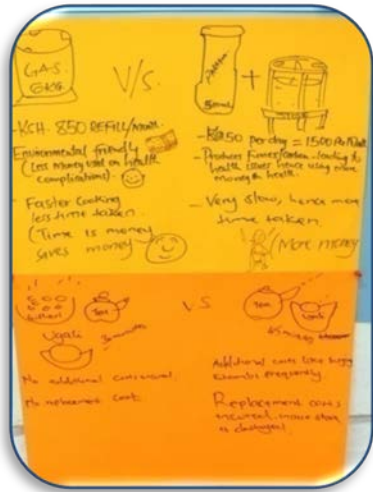 GAS
6KG
V/S.
500ml
+
- KSH. 850 REFILL/Month.
Environmental friendly
(Less money used on health
complications)
Faster Cooking
less time taken.
(Time is money
saves money
- KSh50 per day = 1500 Per Month
- Produces Fumes/carbon - leading to
health issues hence using more
money to health.
- Very slow, hence more
time taken
(More money
Githeri
Tea
Ugali
30 minutes
VS
Tea
Ugali
45 minutes
No additional costs incurred.
No replacement cost.
Additional costs like buying
frequently
Replacement costs
incurred, once stove
is damaged.